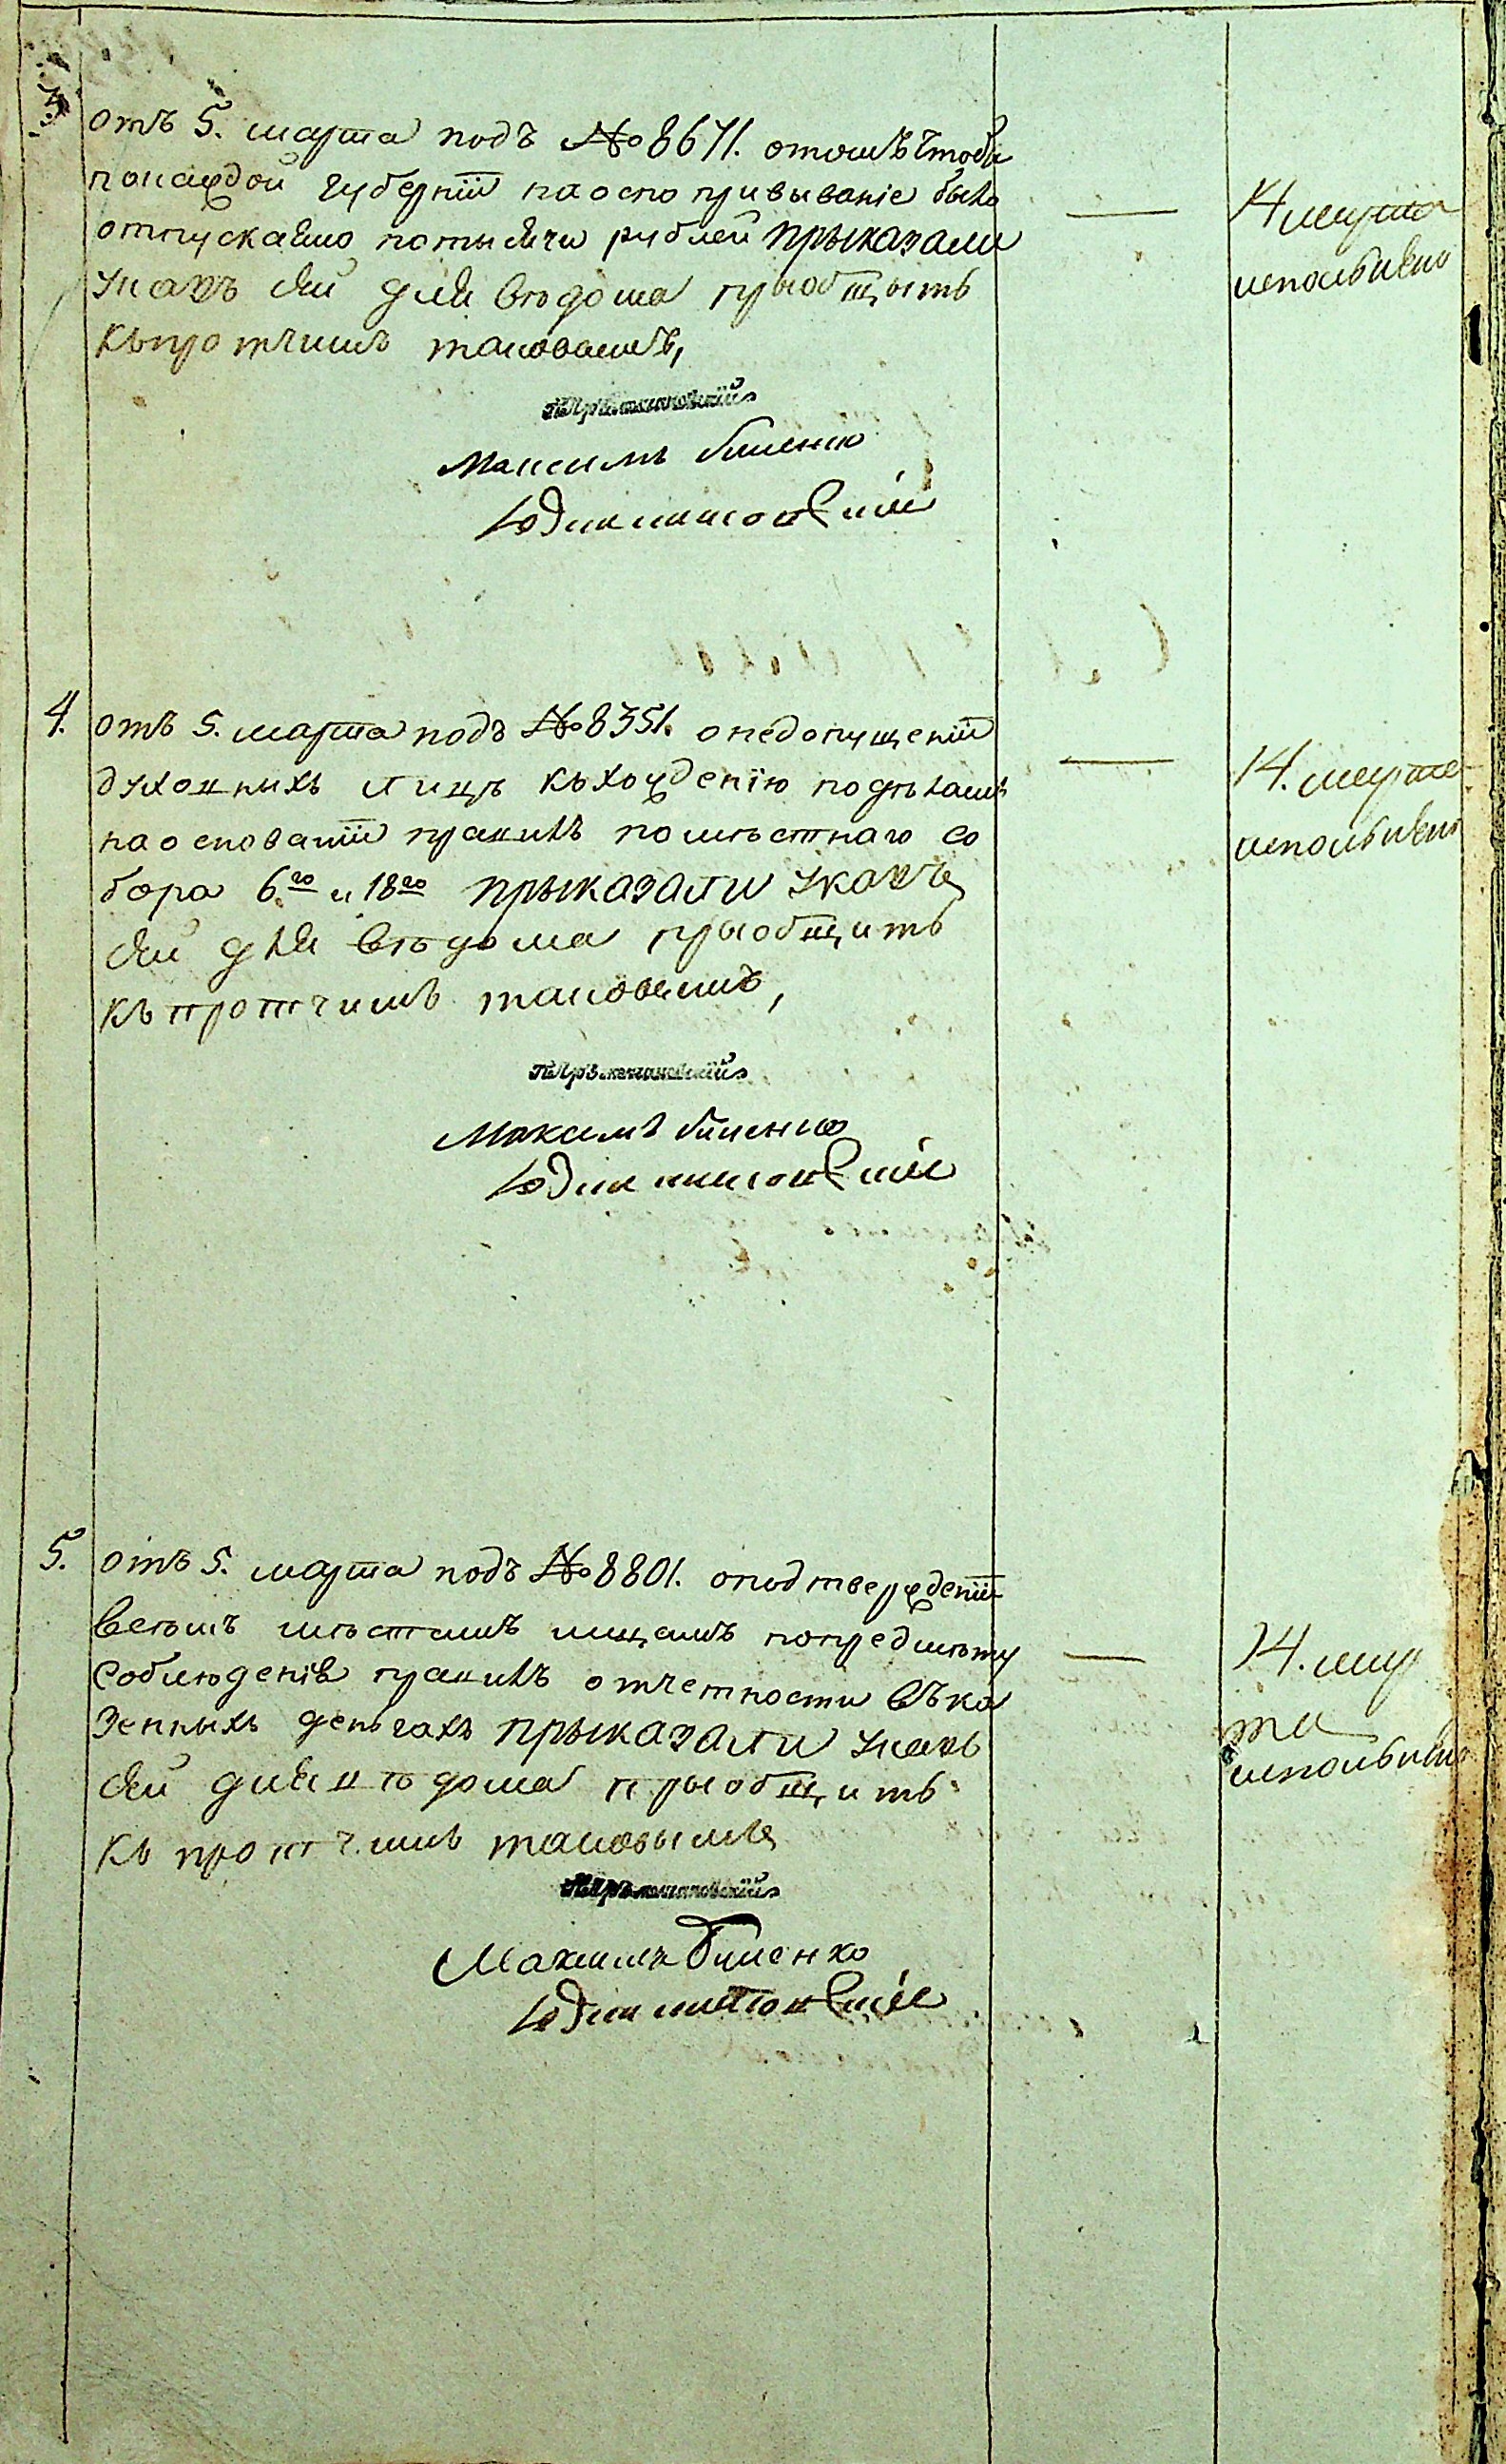 3.
отъ 5. марта подъ № 8671. отомъ чтобы
покаждой губерніи на оспо прививаніе было
отпускаемо потысячи рублей приказали
указъ сей для вѣдома пріобщить
къпротчимъ таковымъ,
Максимъ Биленко
14 марта
исполнено
4.
отъ 5. марта подъ № 8351. онедопущеніи
духовныхъ лицъ къхожденію подѣламъ
на основаніи правилъ помѣстнаго со
бора 6го и 18го приказали указъ
сей для вѣдома пріобщить
къ протчимъ таковымъ,
Максимъ Биленко
14. марта
исполнено
5.
отъ 5. марта подъ № 8801. оподтвержденіи
всемъ мѣстамъ лицамъ попредмѣту
соблюденія правилъ отчетности въка
зенныхъ деньгахъ приказали указъ
сей для вѣдома пріобщить
къ протчимъ таковымъ
Максимъ Биленко
14. мар
та
исполнено